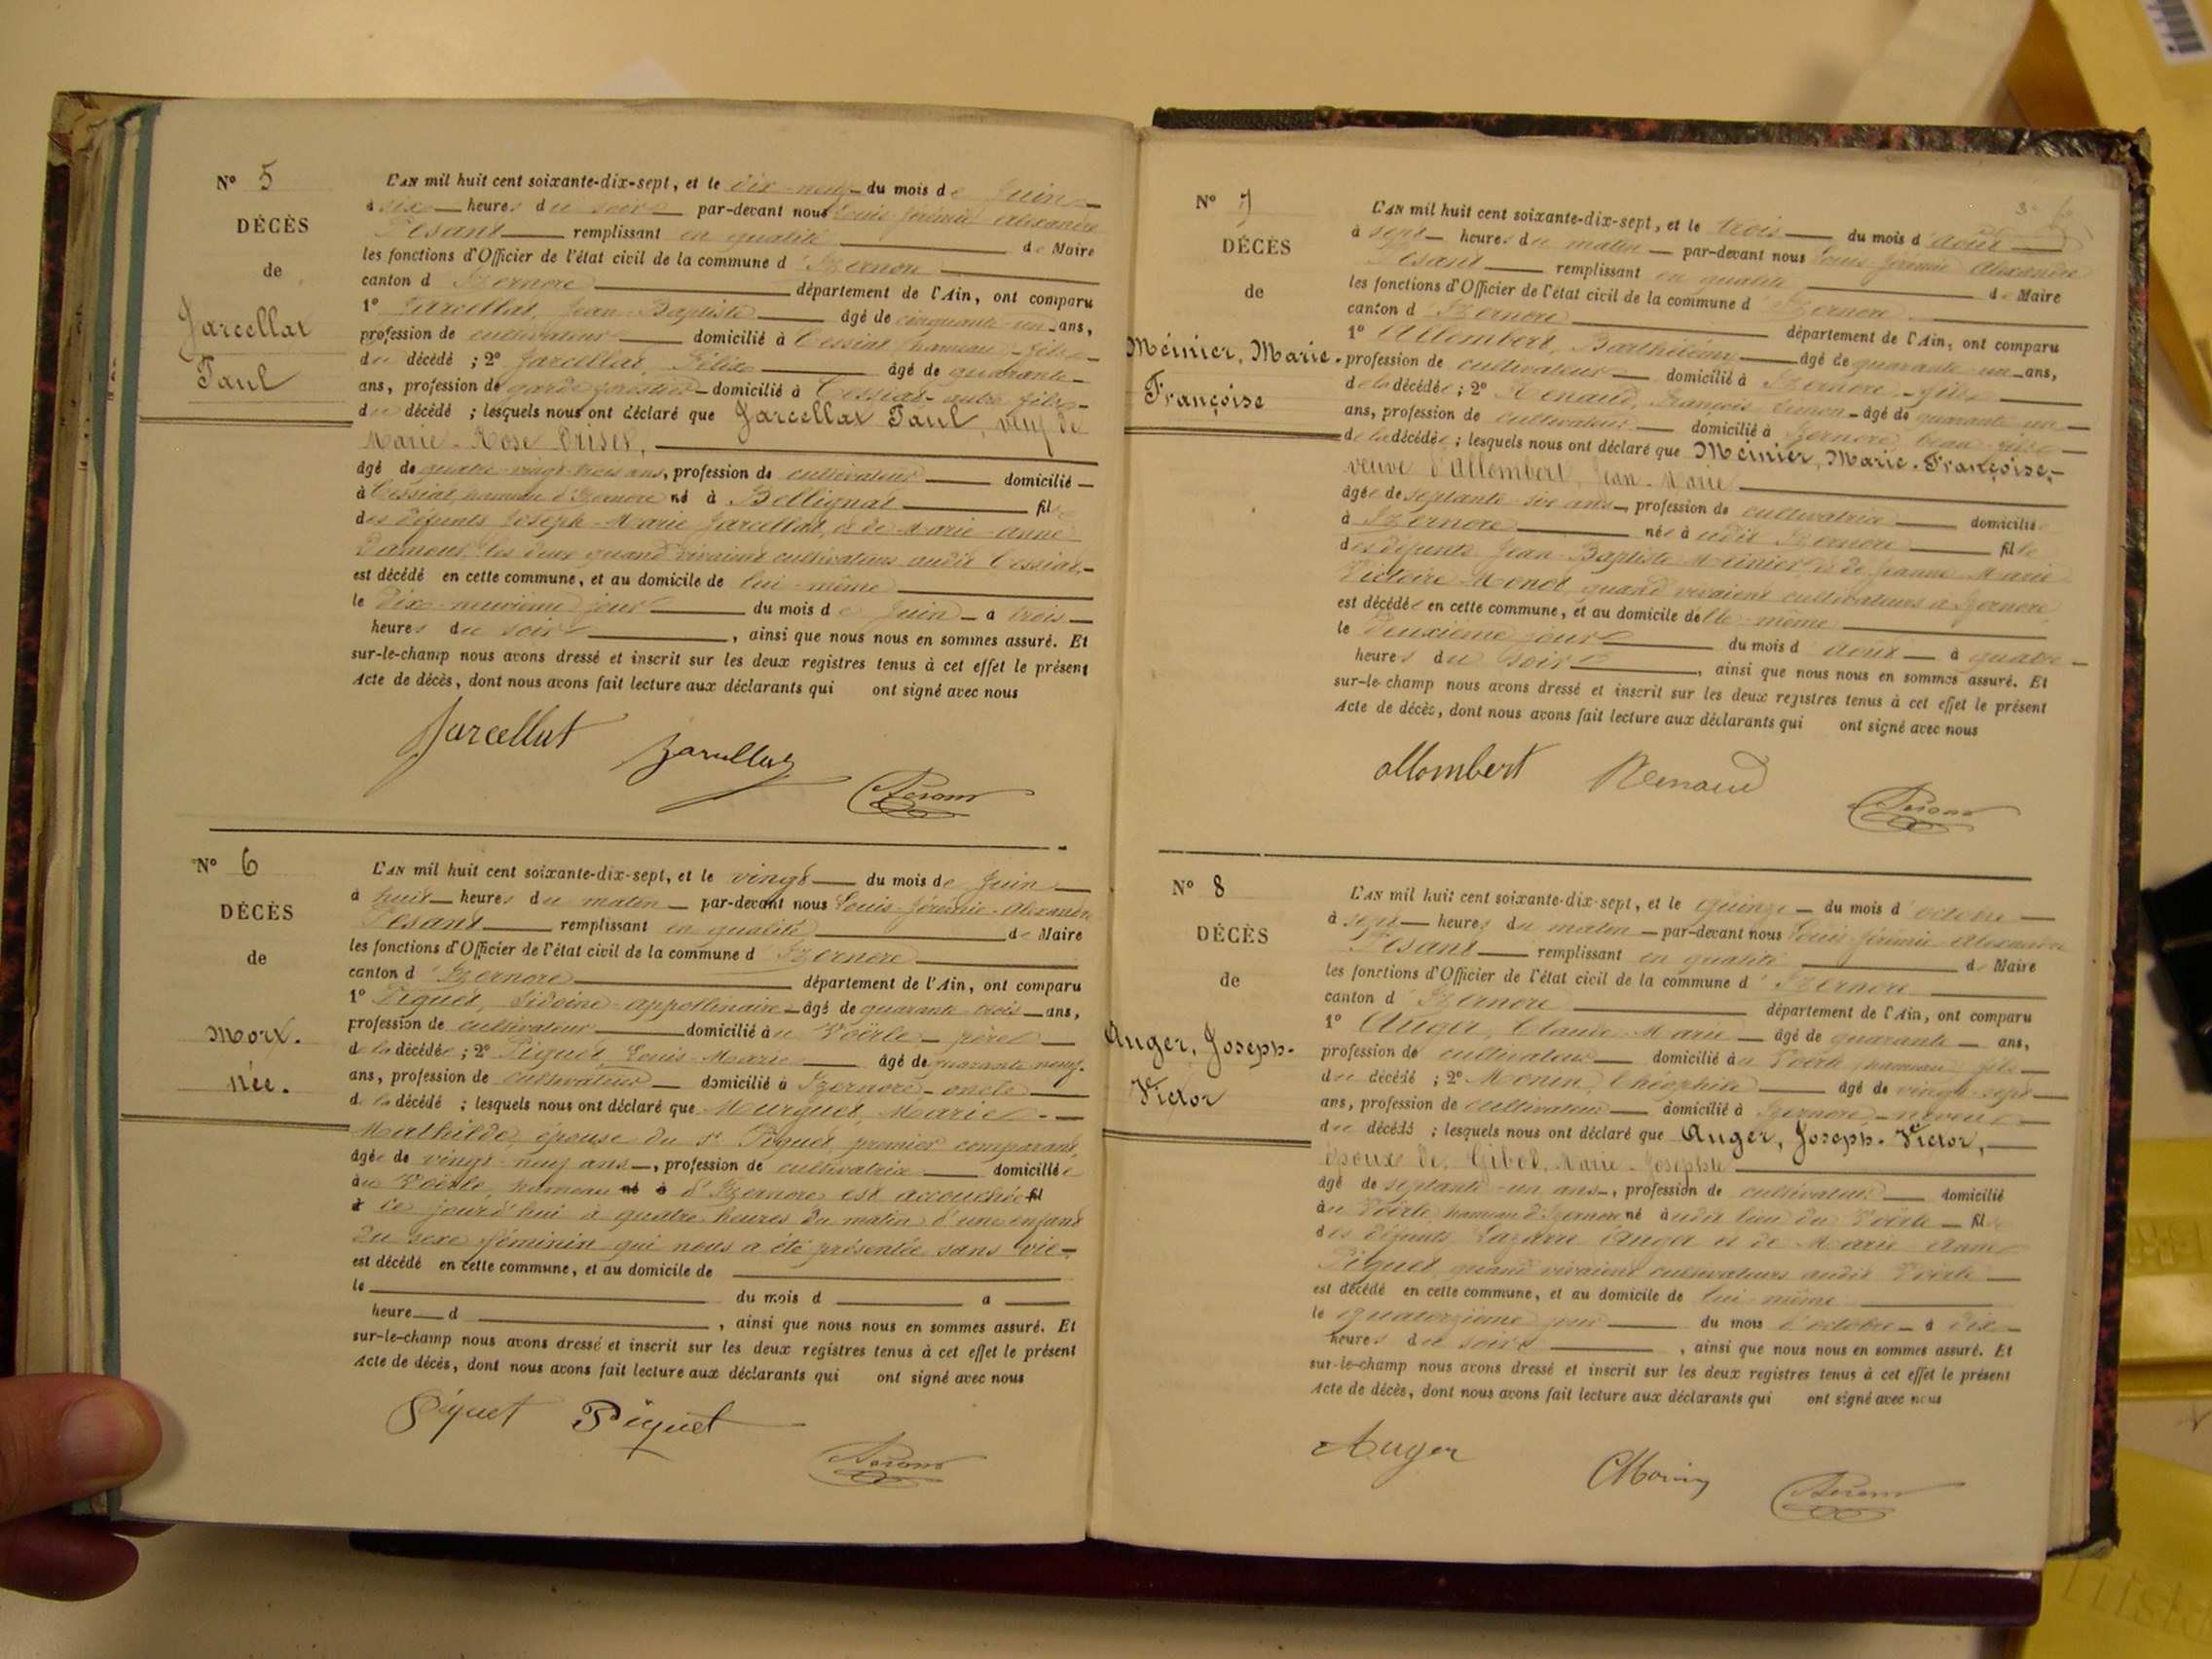 Nº 5
DÉCÈS
de
Jarcellat
Paul
L'AN mil huit cent soixante-dix-sept, et le dix-neuf du mois de Juin
à six heures du soir par-devant nous Louis Jérémie Alexandre
Pesant remplissant en qualité de Maire
les fonctions d'Officier de l'état civil de la commune d'Izernore
canton d'Izernore département de l'Ain, ont comparu
1º Jarcellat, Jean-Baptiste âgé de cinquante-un ans,
profession de cultivateur domicilié à Cessiat hameau fils
du décédé ; 2º Jarcellat, Félix âgé de quarante
ans, profession de garde forestier domicilié à Cessiat autre fils
du décédé ; lesquels nous ont déclaré que Jarcellat Paul, veuf de
Marie-Rose
âgé de quatre-vingt-trois ans, profession de cultivateur domicilié
à Cessiat, hameau d'Izernore né à Bellignat fils
des défunts Joseph-Marie Jarcellat, et de Marie-Anne
les deux quand vivaient cultivateurs audit Cessiat
est décédé en cette commune, et au domicile de lui-même
le dix-neuvième jour du mois de Juin à trois
heures du soir, ainsi que nous nous en sommes assuré. Et
sur-le-champ nous avons dressé et inscrit sur les deux registres tenus à cet effet le présent
Acte de décès, dont nous avons fait lecture aux déclarants qui ont signé avec nous
Jarcellat Jarcellat Pesant
Nº 6
DÉCÈS
de
Mort-
née.
L'AN mil huit cent soixante-dix-sept, et le vingt du mois de Juin
à huit heures du matin par-devant nous Louis-Jérémie-Alexandre
Pesant remplissant en qualité de Maire
les fonctions d'Officier de l'état civil de la commune d'Izernore
canton d'Izernore département de l'Ain, ont comparu
1º Piquet, Sidoine-Appollinaire âgé de quarante-trois ans,
profession de cultivateur domicilié au Voërle père
de la décédée ; 2º Piquet, Louis-Marie âgé de quarante-neuf
ans, profession de cultivateur domicilié à Izernore oncle
de la décédé ; lesquels nous ont déclaré que Murguet, Marie
Mathilde, épouse du sr Piquet, premier comparant,
âgée de vingt-neuf ans, profession de cultivatrice domicilié
au Voërle, hameau né à d'Izernore est accouchée fil
d ce jourd'hui à quatre heures du matin d'une enfant
du sexe féminin qui nous a été présentée sans vie
est décédé en cette commune, et au domicile de
le du mois d à
heure d , ainsi que nous nous en sommes assuré. Et
sur-le-champ nous avons dressé et inscrit sur les deux registres tenus à cet effet le présent
Acte de décès, dont nous avons fait lecture aux déclarants qui ont signé avec nous
Piquet Piquet Pesant
Nº 7
DÉCÈS
de
Meinier, Marie-
Françoise
L'AN mil huit cent soixante-dix-sept, et le trois du mois d'août
à sept heures du matin par-devant nous Louis-Jérémie Alexandre
Pesant remplissant en qualité de Maire
les fonctions d'Officier de l'état civil de la commune d'Izernore
canton d'Izernore département de l'Ain, ont comparu
1º Allombert, Barthélémy âgé de quarante-un ans,
profession de cultivateur domicilié à Izernore fils
de la décédée ; 2º Renaud, François Simon âgé de quarante-un
ans, profession de cultivateur domicilié à Izernore beau-
de la décédée ; lesquels nous ont déclaré que Meinier, Marie-Françoise,
veuve d'Allombert, Jean-Marie
âgée de septante-six ans, profession de cultivatrice domicilié
à Izernore née à udit Izernore fille
des défunts Jean-Baptiste Meinier et de Jeanne Marie
Victoire Monet, quand vivaient cultivateurs à Izernore
est décédée en cette commune, et au domicile d'elle-même
le deuxième jour du mois d'août à quatre
heures du soir, ainsi que nous nous en sommes assuré. Et
sur-le-champ nous avons dressé et inscrit sur les deux registres tenus à cet effet le présent
Acte de décès, dont nous avons fait lecture aux déclarants qui ont signé avec nous
allombert Renaud Pesant
Nº 8
DÉCÈS
de
Auger, Joseph-
Victor
L'AN mil huit cent soixante-dix-sept, et le quinze du mois d'octobre
à sept heures du matin par-devant nous Louis-Jérémie Alexandre
Pesant remplissant en qualité de Maire
les fonctions d'Officier de l'état civil de la commune d'Izernore
canton d'Izernore département de l'Ain, ont comparu
1º Auger, Claude-Marie âgé de quarante ans,
profession de cultivateur domicilié au Voërle hameau fils
du décédé ; 2º Monin, Théophile âgé de vingt-sept
ans, profession de cultivateur domicilié à Izernore neveu
du décédé ; lesquels nous ont déclaré que Auger, Joseph-Victor,
époux de Gibod, Marie-Josephte
âgé de septante-un ans, profession de cultivateur domicilié
au Voërle, hameau d'Izernore né audit lieu du Voërle fils
des défunts Lazarre Auger et de Marie Anne
Piquet, quand vivaient cultivateurs audit Voërle
est décédé en cette commune, et au domicile de lui-même
le quatorzième jour du mois d'octobre à dix
heures du soir, ainsi que nous nous en sommes assuré. Et
sur-le-champ nous avons dressé et inscrit sur les deux registres tenus à cet effet le présent
Acte de décès, dont nous avons fait lecture aux déclarants qui ont signé avec nous
Auger Monin Pesant